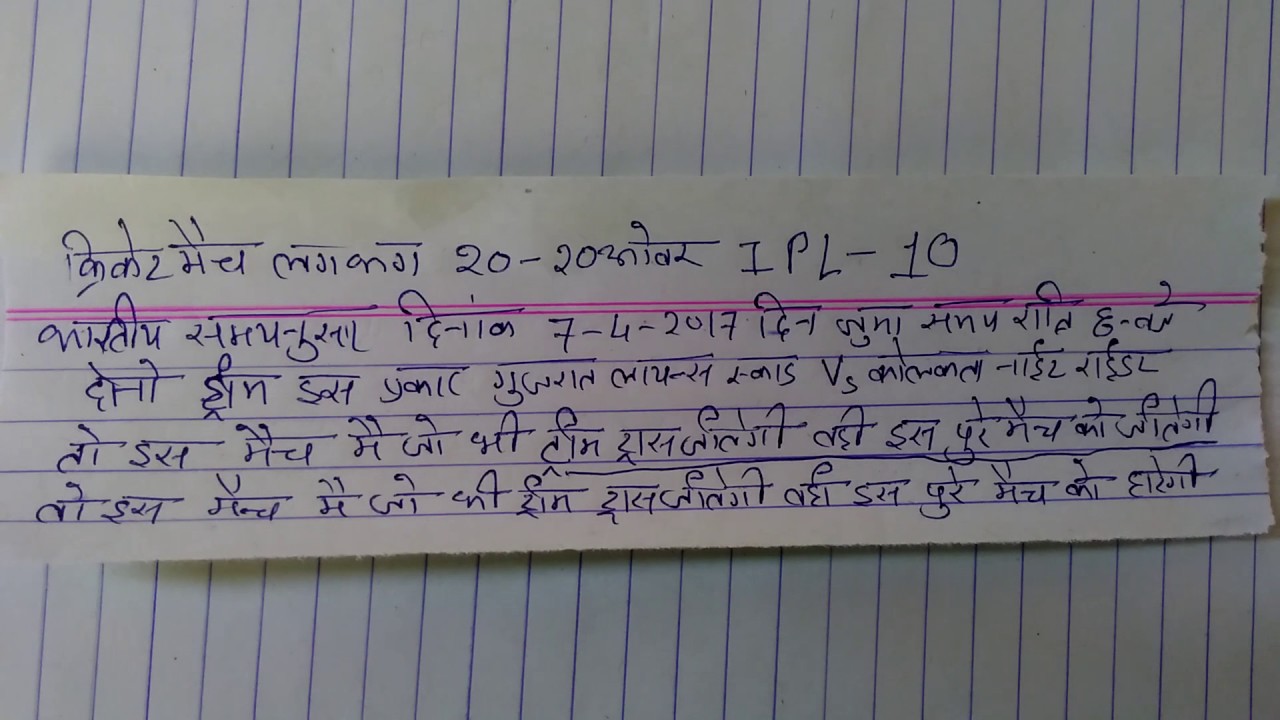 क्रिकेट मैच लगभग 20-20 ओवर IPL-10
भारतीय समयनुसार दिनांक 7-4-2017 दिन जुमा समय रात्रि 8-बजे
दोनो ट्रीम इस प्रकार गुजरात लायन्स स्काड Vs कोलकता नाईट राईडर
तो इस मैच मै जो भी टीम ट्रास जीतेगी वही इस पुरे मैच को जीतेगी
तो इस मैच मै जो भी ट्रीम ट्रास जीतेगी वही इस पुरे मैच को हारेगी